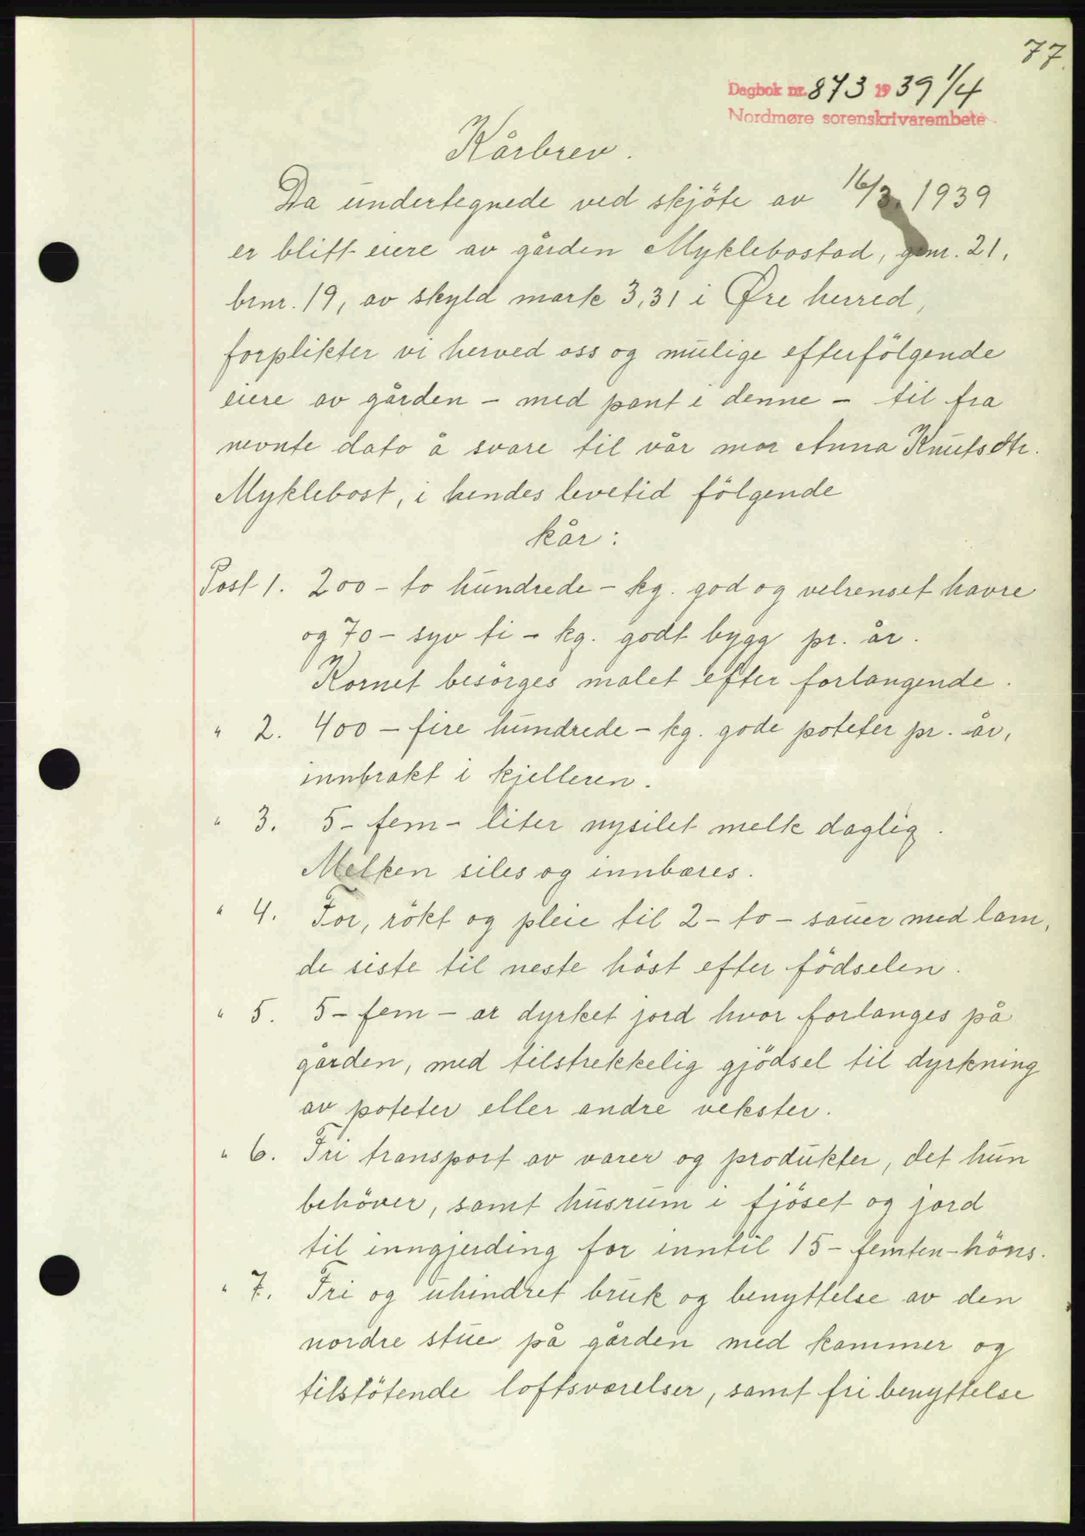 77.
Dagbok nr. 873 1939 1/4
Nordmøre sorenskrivarembete
Kårbrev.
Da undertegnede ved skjöte av 16/3. 1939
er blitt eiere av gården Myklebostad, gnr. 21,
brnr. 19, av skyld mark 3,31 i Øre herred,
forplikter vi herved oss og mulige efterfölgende
eiere av gården - med pant i denne - til fra
nevnte dato å svare til vår mor Anna Knutsdtr.
Myklebost, i hendes levetid fölgende
kår:
Post 1. 200 - to hundrede - kg. god og velrenset havre
og 70 - syv ti - kg. godt bygg pr. år.
Kornet besörges malet efter forlangende.
" 2. 400 - fire hundrede - kg. gode poteter pr. år,
innbrakt i kjelleren.
" 3. 5 - fem - liter nysilet melk daglig.
Melken siles og innbæres.
" 4. For, rökt og pleie til 2 - to - sauer med lam,
de siste til neste höst efter födselen.
" 5. 5 - fem - ar dyrket jord hvor forlanges på
gården, med tilstrekkelig gjödsel til dyrkning
av poteter eller andre vekster.
" 6. Fri transport av varer og produkter, det hun
behöver, samt husrum i fjöset og jord
til inngjerding for inntil 15 - femten - höns.
" 7. Fri og uhindret bruk og benyttelse av den
nordre stue på gården med kammer og
tilstötende loftsværelser, samt fri benyttelse